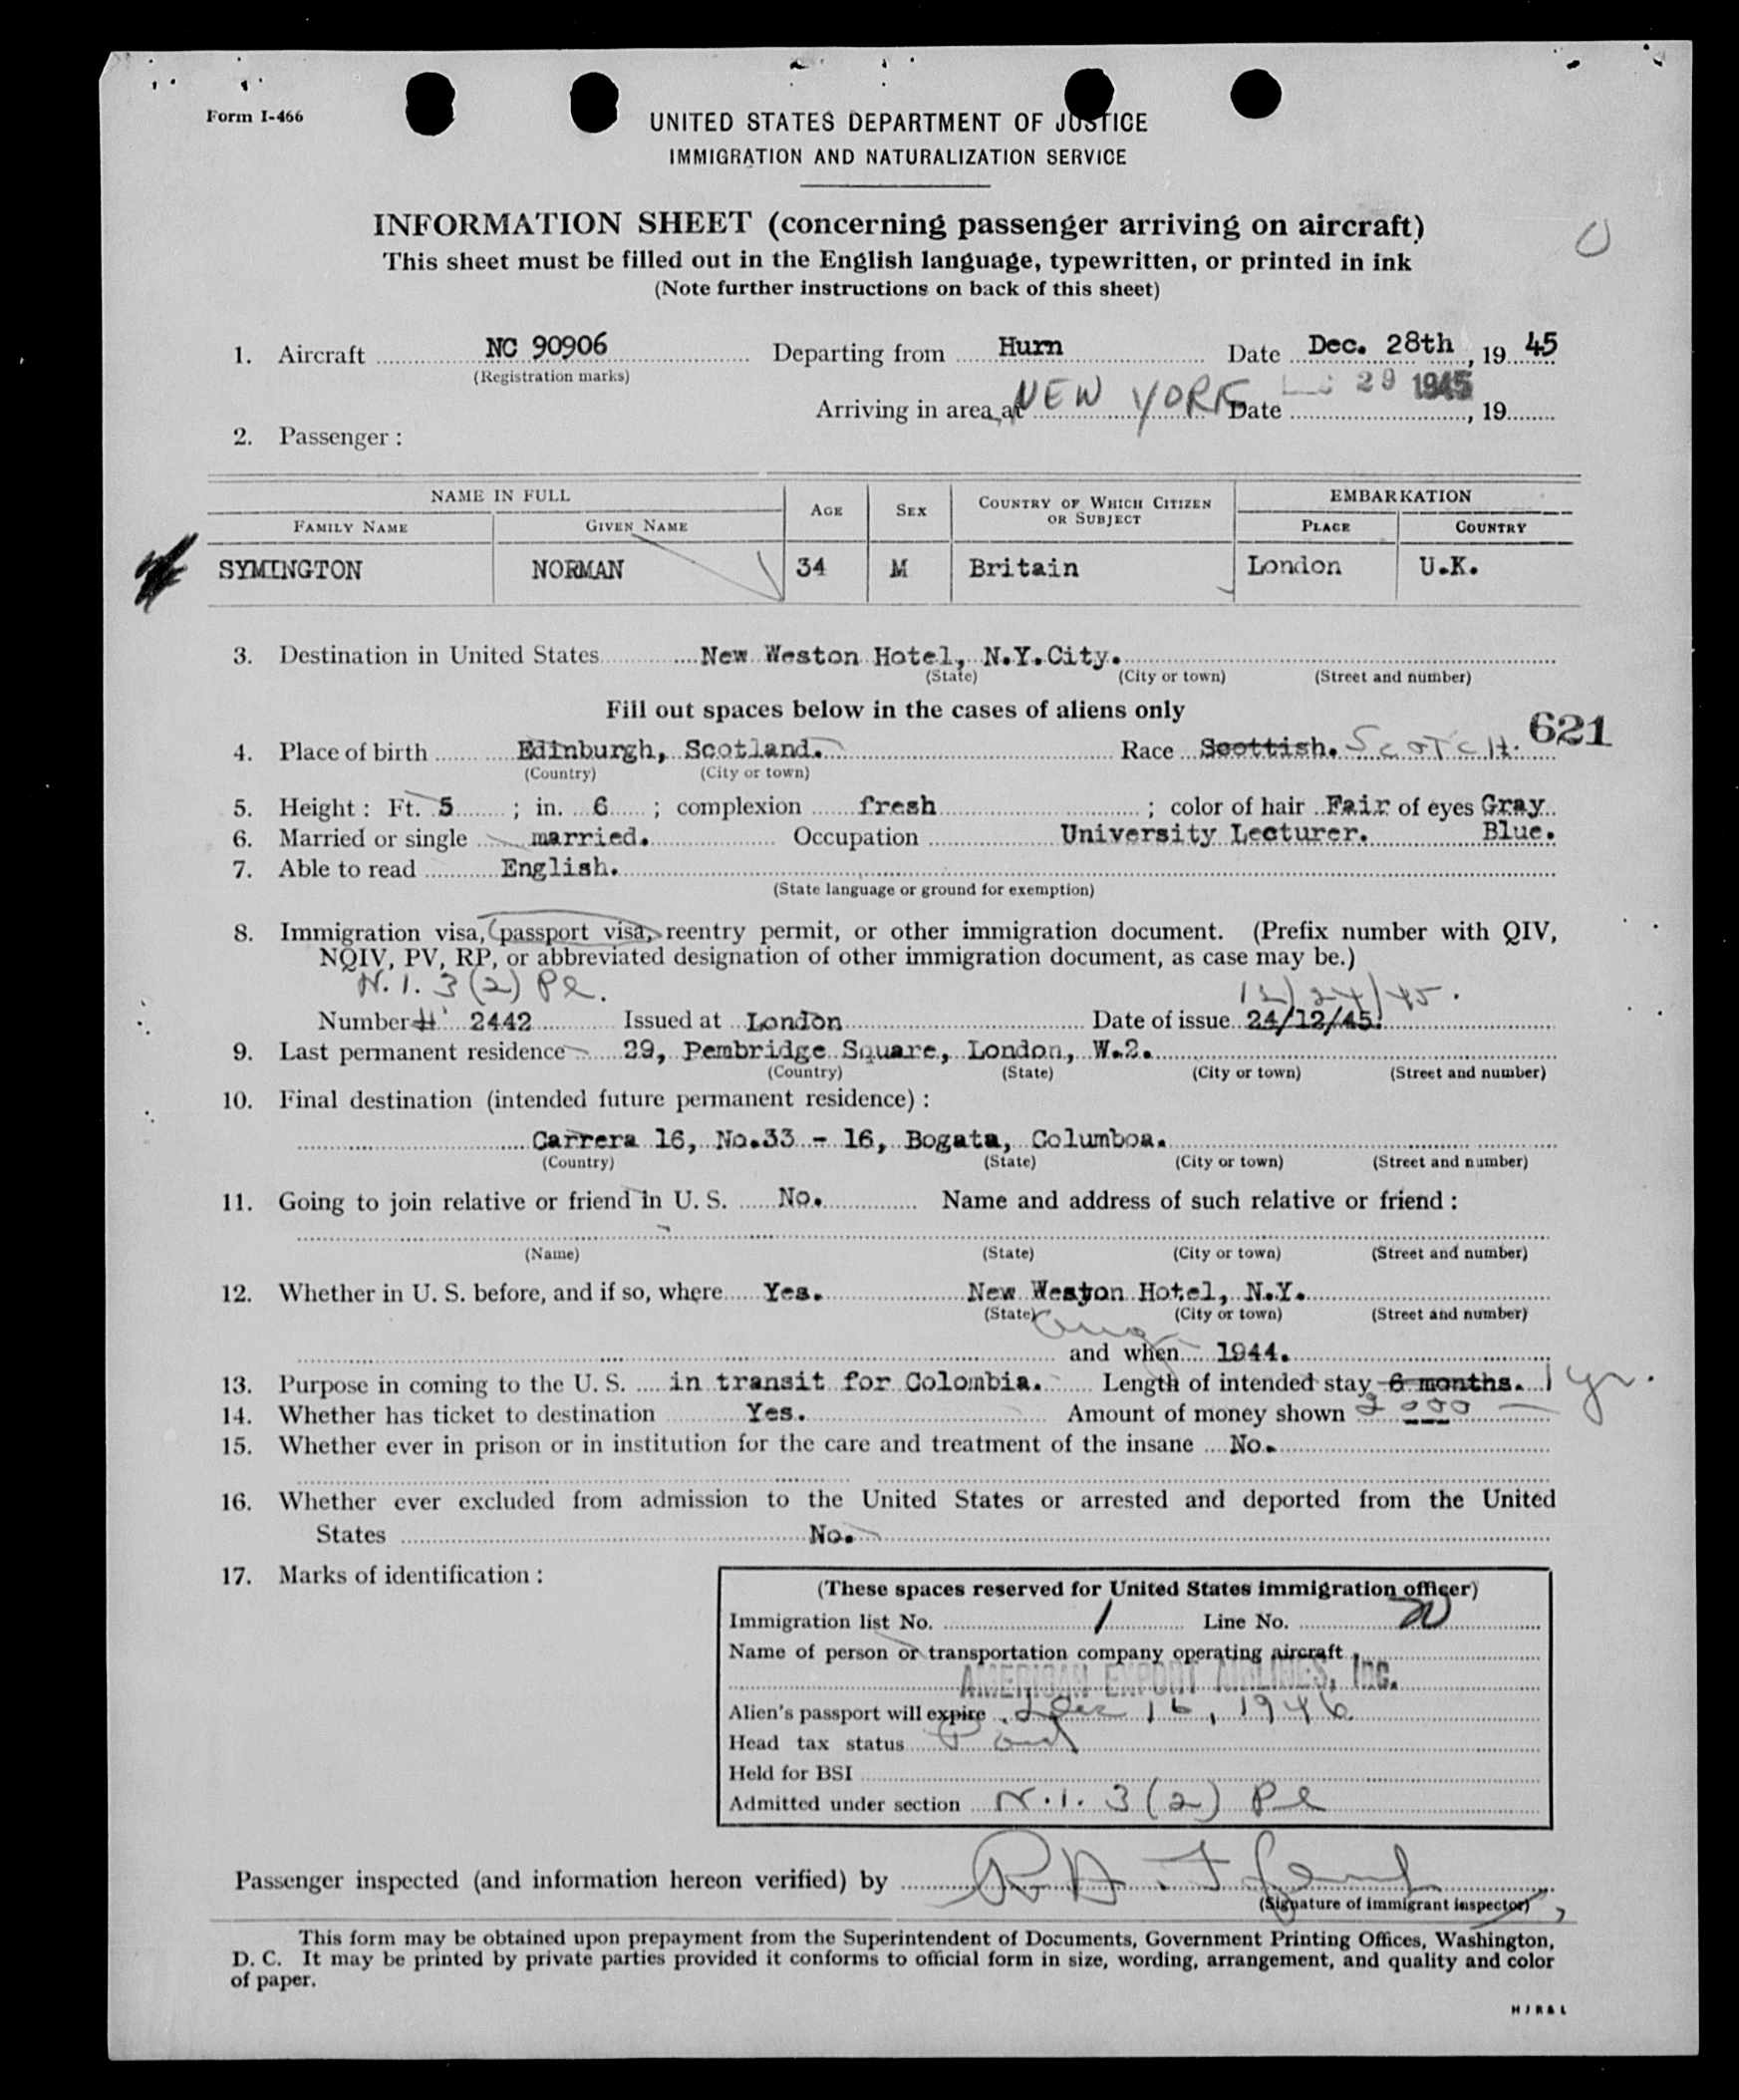 Form I-466
UNITED STATES DEPARTMENT OF JUSTICE
IMMIGRATION AND NATURALIZATION SERVICE
INFORMATION SHEET (concerning passenger arriving on aircraft)
This sheet must be filled out in the English language, typewritten, or printed in ink
(Note further instructions on back of this sheet)
1. Aircraft NC 90906 Departing from Hurn Date Dec. 28th, 19 45
(Registration marks)
Arriving in area at NEW YORK Date 29 1945, 19
2. Passenger:
NAME IN FULL AGE SEX COUNTRY OF WHICH CITIZEN OR SUBJECT EMBARKATION
FAMILY NAME GIVEN NAME PLACE COUNTRY
SYMINGTON NORMAN 34 M Britain London U.K.
3. Destination in United States New Weston Hotel, N.Y.City.
(State) (City or town) (Street and number)
Fill out spaces below in the cases of aliens only
621
4. Place of birth Edinburgh, Scotland. Race Scottish. SCOTCH.
(Country) (City or town)
5. Height: Ft. 5; in. 6; complexion fresh; color of hair Fair of eyes Gray
6. Married or single married. Occupation University Lecturer. Blue.
7. Able to read English.
(State language or ground for exemption)
8. Immigration visa, passport visa, reentry permit, or other immigration document. (Prefix number with QIV,
NQIV, PV, RP, or abbreviated designation of other immigration document, as case may be.)
N.I. 3(2) Pl. 12/24/45.
Number 2442 Issued at London Date of issue 24/12/45.
9. Last permanent residence 29, Pembridge Square, London, W.2.
(Country) (State) (City or town) (Street and number)
10. Final destination (intended future permanent residence):
Carrera 16, No.33 - 16, Bogata, Columboa.
(Country) (State) (City or town) (Street and number)
11. Going to join relative or friend in U. S. No. Name and address of such relative or friend:
(Name) (State) (City or town) (Street and number)
12. Whether in U. S. before, and if so, where Yes. New Weston Hotel, N.Y.
(State) (City or town) (Street and number)
Aug
and when 1944.
13. Purpose in coming to the U. S. in transit for Colombia. Length of intended stay 6 months. 1 yr.
14. Whether has ticket to destination Yes. Amount of money shown 2000
15. Whether ever in prison or in institution for the care and treatment of the insane No.
16. Whether ever excluded from admission to the United States or arrested and deported from the United
States No.
17. Marks of identification:
(These spaces reserved for United States immigration officer)
Immigration list No. 1 Line No. 20
Name of person or transportation company operating aircraft
AMERICAN EXPORT AIRLINES, Inc.
Alien's passport will expire Dec 16, 1946
Head tax status Paid
Held for BSI
Admitted under section N.I. 3(2) Pl
Passenger inspected (and information hereon verified) by
(Signature of immigrant inspector)
This form may be obtained upon prepayment from the Superintendent of Documents, Government Printing Offices, Washington,
D. C. It may be printed by private parties provided it conforms to official form in size, wording, arrangement, and quality and color
of paper.
H J R & L